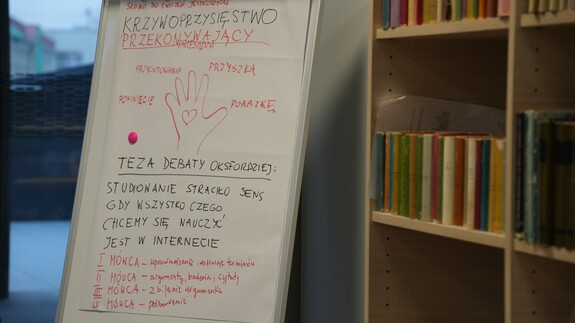 SŁOWO DO ĆWICZEŃ
KRZYWOPRZYSIĘSTWO
PRZEKONYWAJĄCY
PRZYSZKĄ
PORAŻKĘ
TEZA DEBATY OKSFORDZIEJ:
STUDIOWANIE STRACIŁO SENS
GDY WSZYSTKO CZEGO
CHCEMY SIĘ NAUCZYĆ
JEST W INTERNECIE
I MÓWCA – wprowadzenie, definicje terminów
II MÓWCA – argumenty, badania, cytaty
III MÓWCA – zbijanie argumentów
IV MÓWCA – podsumowanie